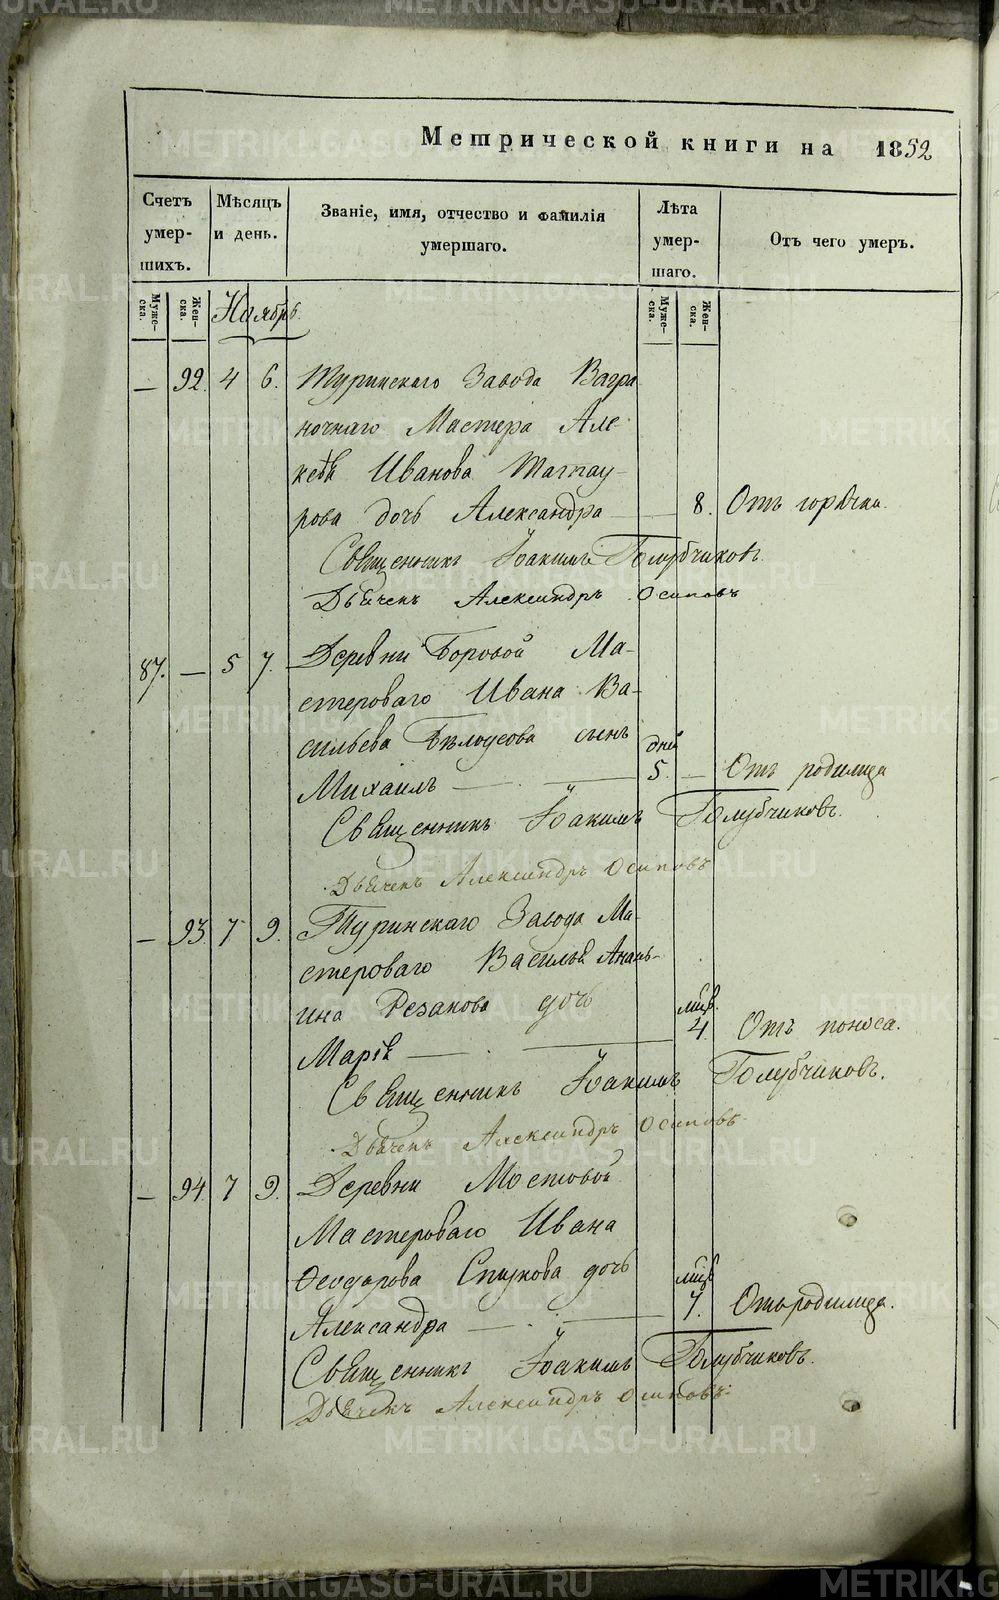 METRIKI.GASO-URAL.RU
Метрической книги на 1852
Счетъ умершихъ.
Мѣсяцъ и день.
Званіе, имя, отчество и фамилія умершаго.
Лѣта умершаго.
Отъ чего умеръ.
Мужеска.
Женска.
Ноябрь
Мужеска.
Женска.
— 92. 4 6. Туринскаго Завода Вагра
ночнаго Мастера Але
ксѣя Иванова
рова дочь Александра — 8. Отъ горячки.
Священникъ Іоакимъ Голубчиковъ.
Дьячекъ Александръ Осиповъ
87. — 5 7. Деревни Боровой Ма-
стероваго Ивана Ва-
сильева Бѣлоусова сынъ дней
Михаилъ — 5. — Отъ родимца
Священникъ Іоакимъ Голубчиковъ.
Дьячекъ Александръ Осиповъ
— 93. 7 9. Туринскаго Завода Ма-
стероваго Василья Анань-
ина Резанова дочь мѣс.
Марія — 4. Отъ поноса.
Священникъ Іоакимъ Голубчиковъ.
Дьячекъ Александръ Осиповъ
— 94. 7 9. Деревни Мостовой
Мастероваго Ивана
Ѳеодорова дочь мѣс.
Александра — 7. Отъ родимца.
Священникъ Іоакимъ Голубчиковъ.
Дьячекъ Александръ Осиповъ